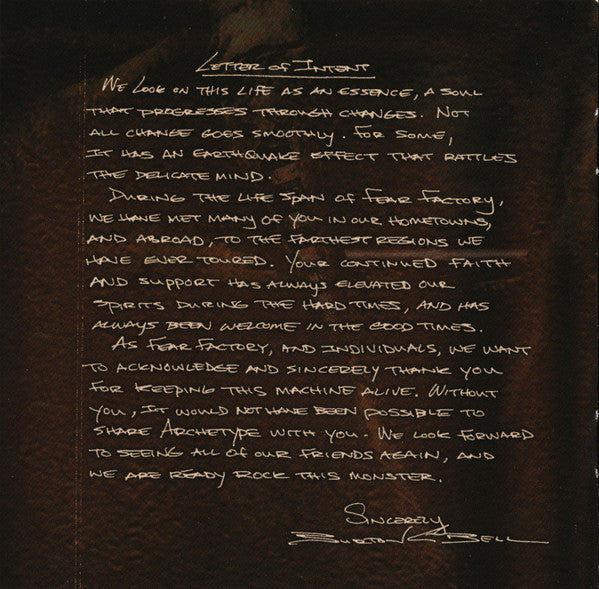 Letter of Intent
We look on this life as an essence, a soul
that progresses through changes. Not
all change goes smoothly. For some,
it has an earthquake effect that rattles
the delicate mind.
During the life span of Fear Factory,
we have met many of you in our hometowns,
and abroad, to the farthest regions we
have ever toured. Your continued faith
and support has always elevated our
spirits during the hard times, and has
always been welcome in the good times.
As Fear Factory, and individuals, we want
to acknowledge and sincerely thank you
for keeping this machine alive. Without
you, it would not have been possible to
share Archetype with you. We look forward
to seeing all of our friends again, and
we are ready rock this monster.
Sincerely
Burton C Bell